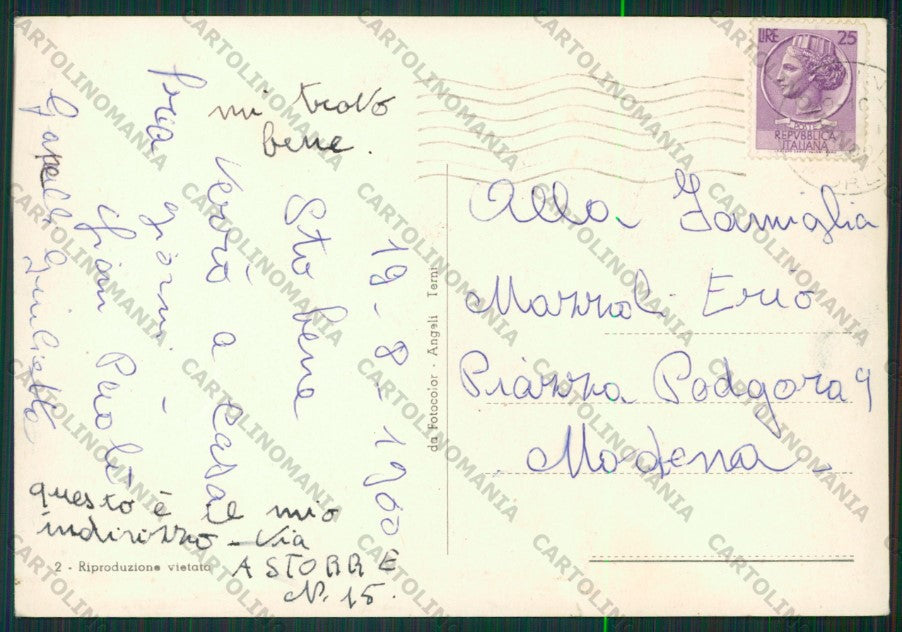 19-8-1960
Sto bene
verrò a casa
fra giorni -
Gian Paolo
Giulietta
mi trovo
bene.
questo è il mio
indirizzo - Via
ASTORRE
N. 15.
2 - Riproduzione vietata
da Fotocolor - Angeli Terni
LIRE 25
POSTE
REPVBBLICA
ITALIANA
Alla Famiglia
Mazzoli Erio
Piazza Podgora 9
Modena -
CARTOLINOMANIA